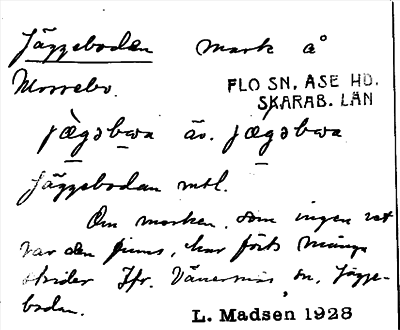 Jäggeboden mark å
Morrebo.
FLO SN, ASE HD.
SKARAB. LÄN
jægəbωa äv. jægəbωa
Jäggebodan mtl.
Om marken, som ingen vet
var den finns, har förts många
strider Jfr. Vänersnäs sn, Jägge-
boden.
L. Madsen 1928